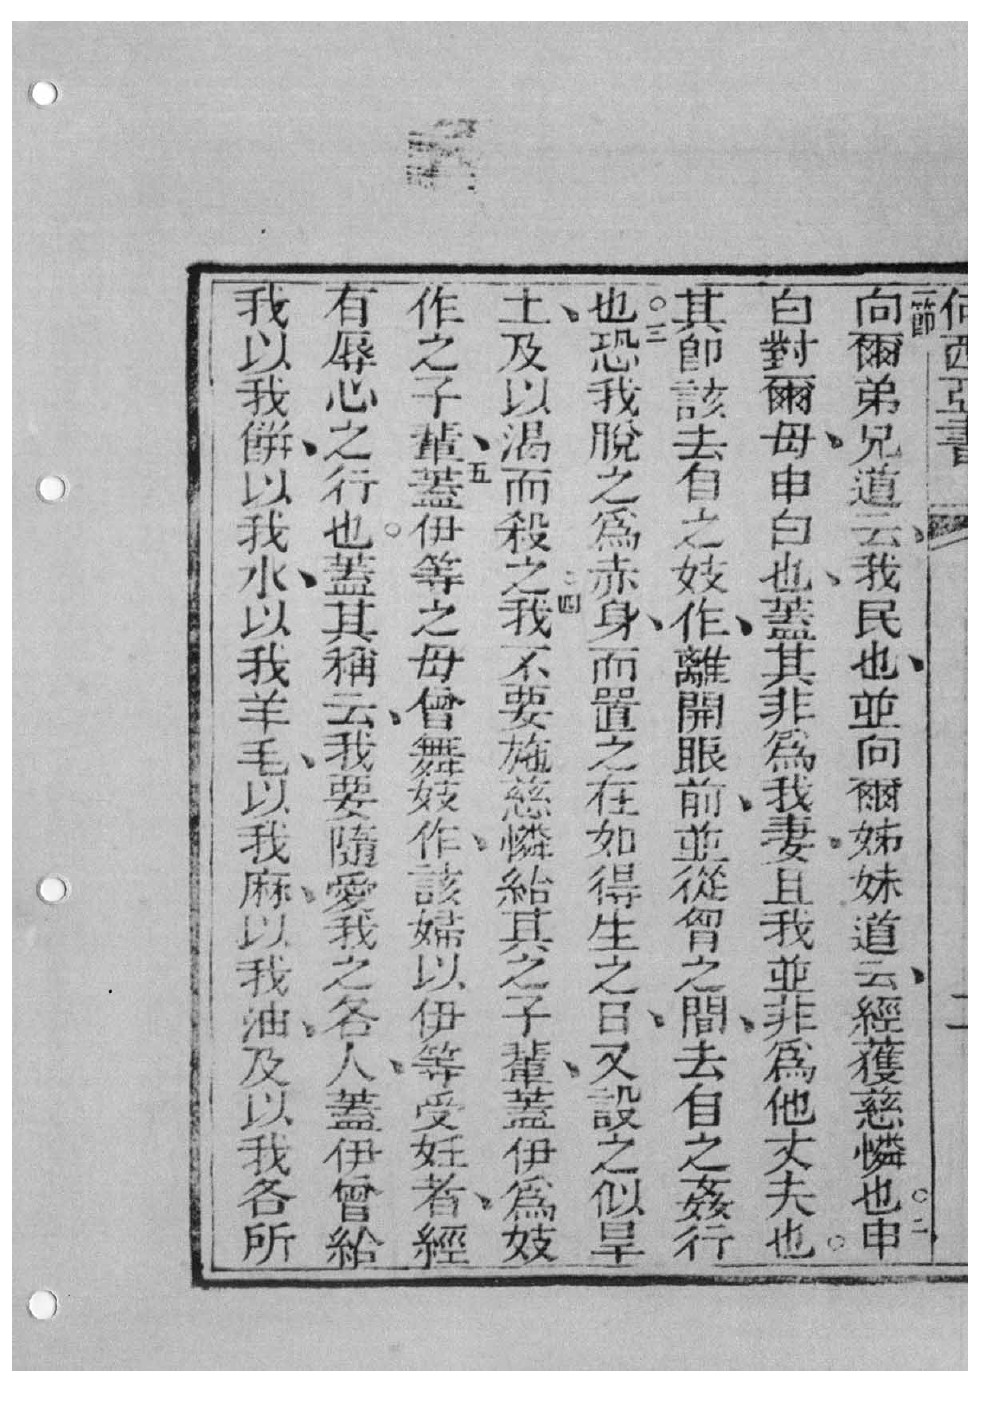 何西亞書 二
一節
向爾弟兄道云、我民也、並向爾姊妹道云、經獲慈憐也○二申
白對爾母、申白也、蓋其非為我妻、且我並非為他丈夫也○
其卽該去自之妓作、離開眼前、並從胷之間、去自之姦行
○三也恐我脫之為赤身、而置之在如得生之日、又設之似旱
土、及以渴而殺之○四我不要施慈憐給其之子輩、蓋伊為妓
作之子輩、五蓋伊等之母曾舞妓作、該婦以伊等受妊者、經
有辱心之行也○蓋其稱云、我要隨愛我之各人、蓋伊曾給
我以我餅、以我水、以我羊毛、以我麻、以我油、及以我各所